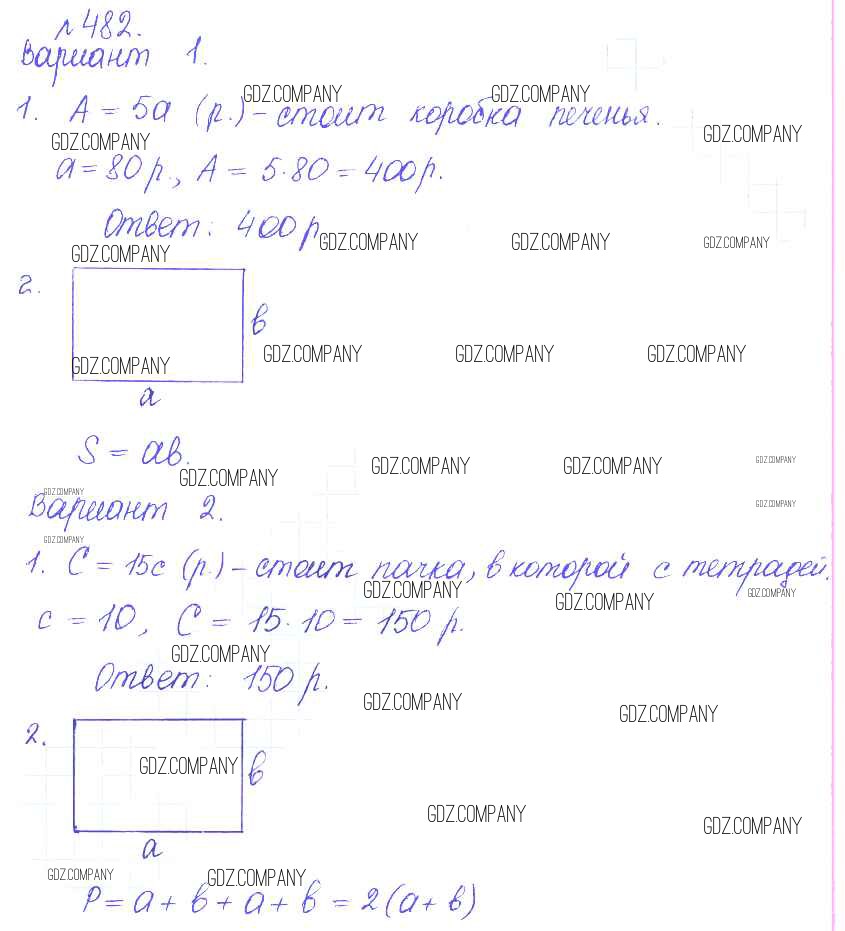 № 482.
Вариант 1.
GDZ.COMPANY GDZ.COMPANY
1. A = 5a (р.) – стоит коробка печенья.
GDZ.COMPANY GDZ.COMPANY
a = 80 р., A = 5·80 = 400 р.
Ответ: 400 р
GDZ.COMPANY GDZ.COMPANY GDZ.COMPANY
GDZ.COMPANY
2.
в
GDZ.COMPANY GDZ.COMPANY GDZ.COMPANY
GDZ.COMPANY
a
S = aв.
GDZ.COMPANY GDZ.COMPANY GDZ.COMPANY
GDZ.COMPANY
GDZ.COMPANY
Вариант 2.
GDZ.COMPANY
GDZ.COMPANY
1. C = 15c (р.) – стоит пачка, в которой c тетрадей.
GDZ.COMPANY GDZ.COMPANY GDZ.COMPANY
c = 10, C = 15·10 = 150 р.
GDZ.COMPANY
Ответ: 150 р.
GDZ.COMPANY GDZ.COMPANY
2.
GDZ.COMPANY
в
GDZ.COMPANY GDZ.COMPANY
a
GDZ.COMPANY GDZ.COMPANY
P = a + в + a + в = 2(a + в)